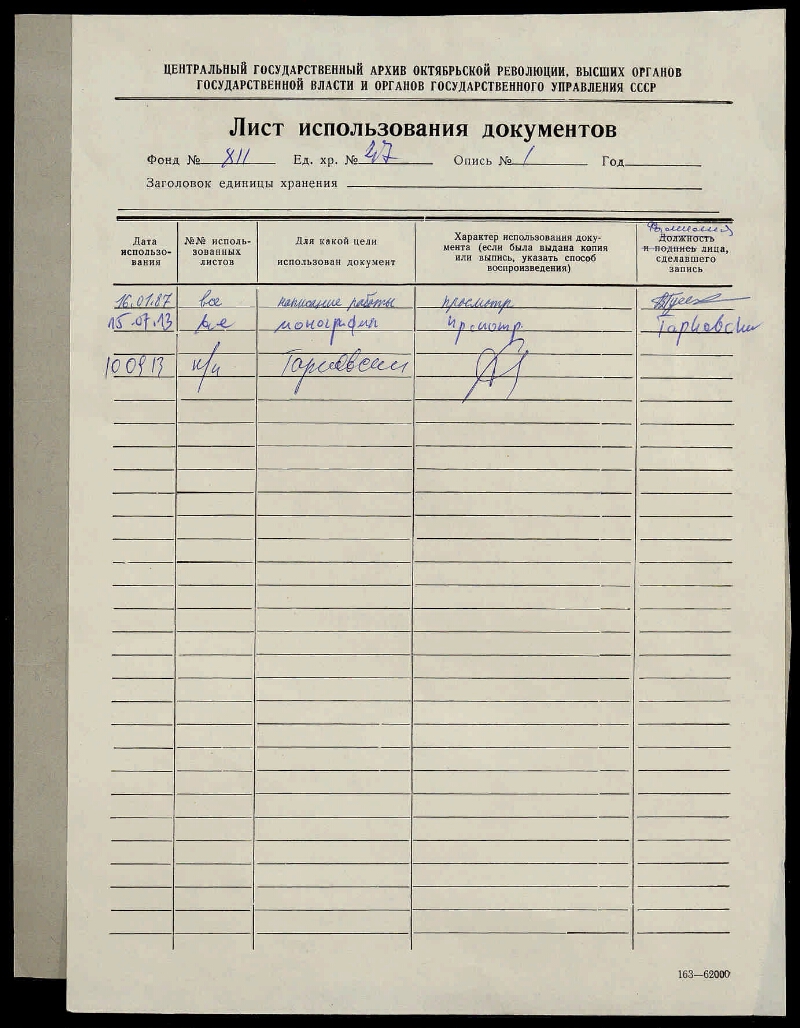 ЦЕНТРАЛЬНЫЙ ГОСУДАРСТВЕННЫЙ АРХИВ ОКТЯБРЬСКОЙ РЕВОЛЮЦИИ, ВЫСШИХ ОРГАНОВ
ГОСУДАРСТВЕННОЙ ВЛАСТИ И ОРГАНОВ ГОСУДАРСТВЕННОГО УПРАВЛЕНИЯ СССР
Лист использования документов
Фонд № XII Ед. хр. № 47 Опись № 1 Год
Заголовок единицы хранения
Дата
использо-
вания
№№ исполь-
зованных
листов
Для какой цели
использован документ
Характер использования доку-
мента (если была выдана копия
или выпись, указать способ
воспроизведения)
Должность
и подпись лица,
сделавшего
запись
16.01.87 все написание работы просмотр
15.07.13 монография просмотр Тарновски
10 09 13
163—62000